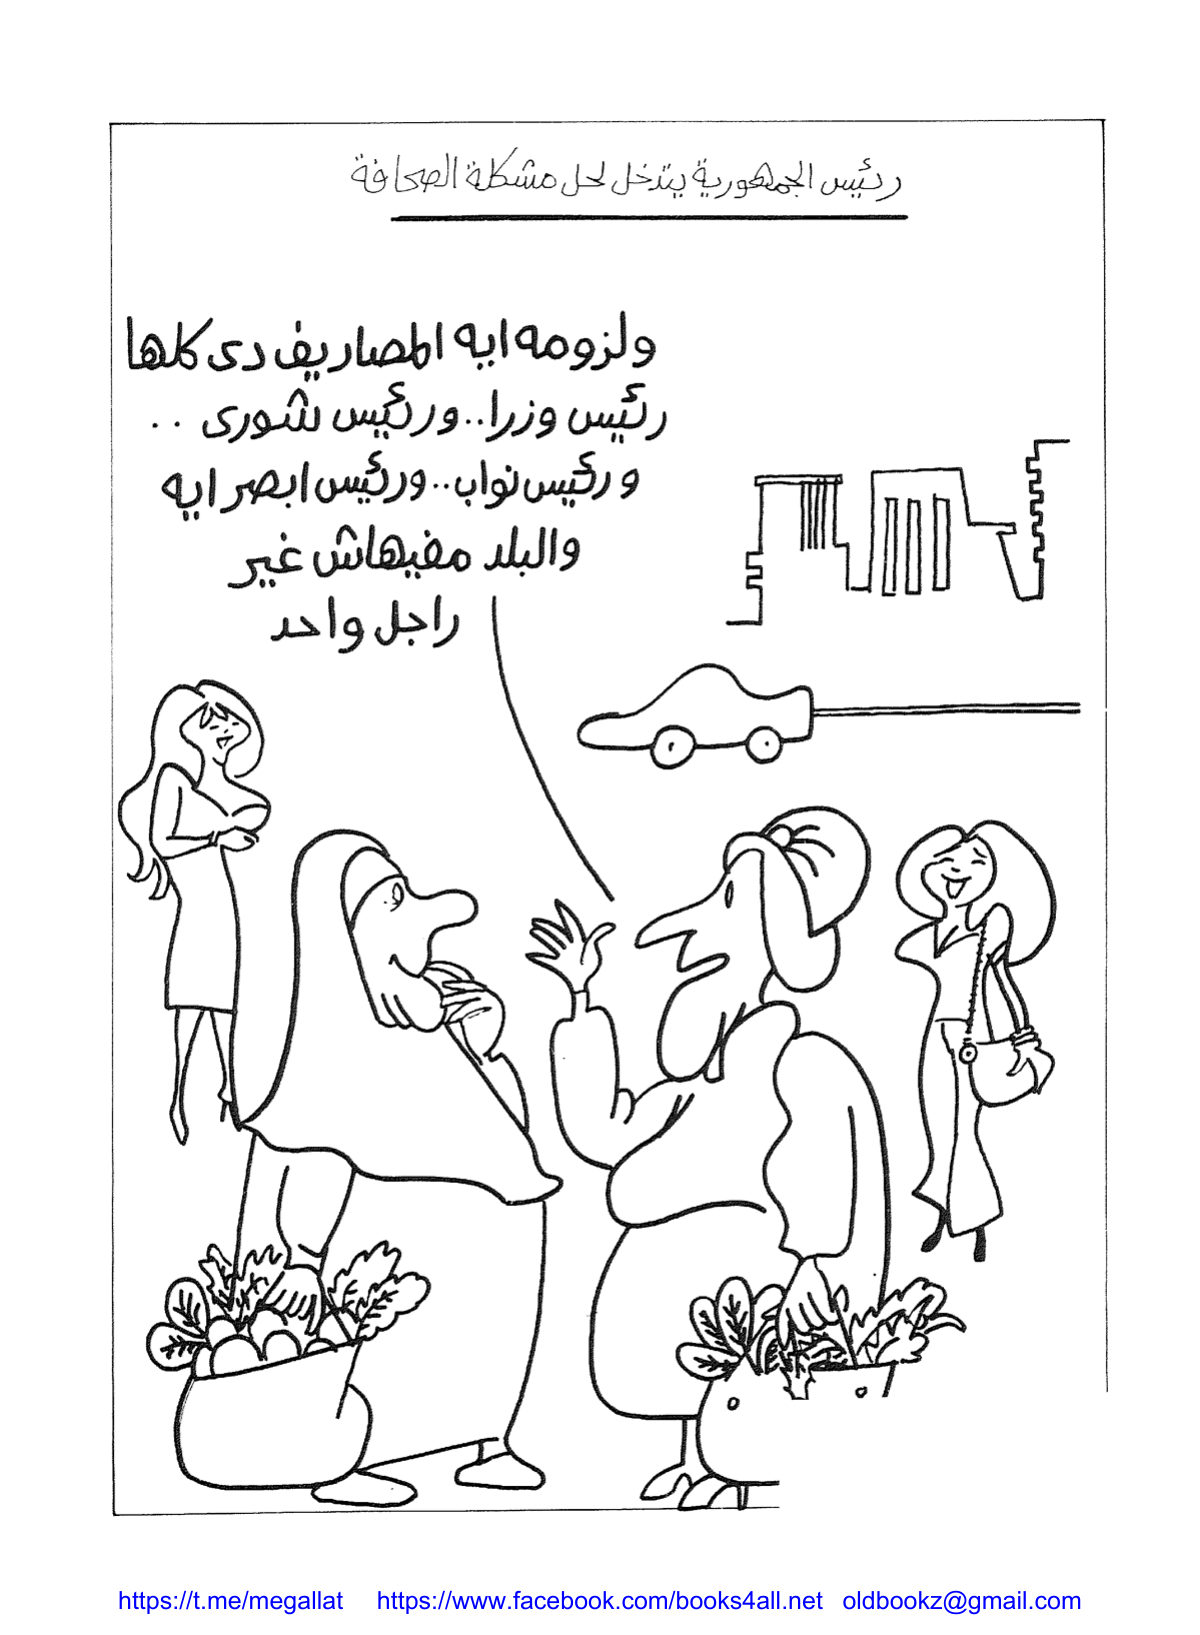 رئيس الجمهورية يتدخل لحل مشكلة الصحافة
ولزومه ايه المصاريف دى كلها
رئيس وزرا.. ورئيس شورى ..
ورئيس نواب.. ورئيس ابصر ايه
والبلد مفيهاش غير
راجل واحد
https://t.me/megallat https://www.facebook.com/books4all.net oldbookz@gmail.com